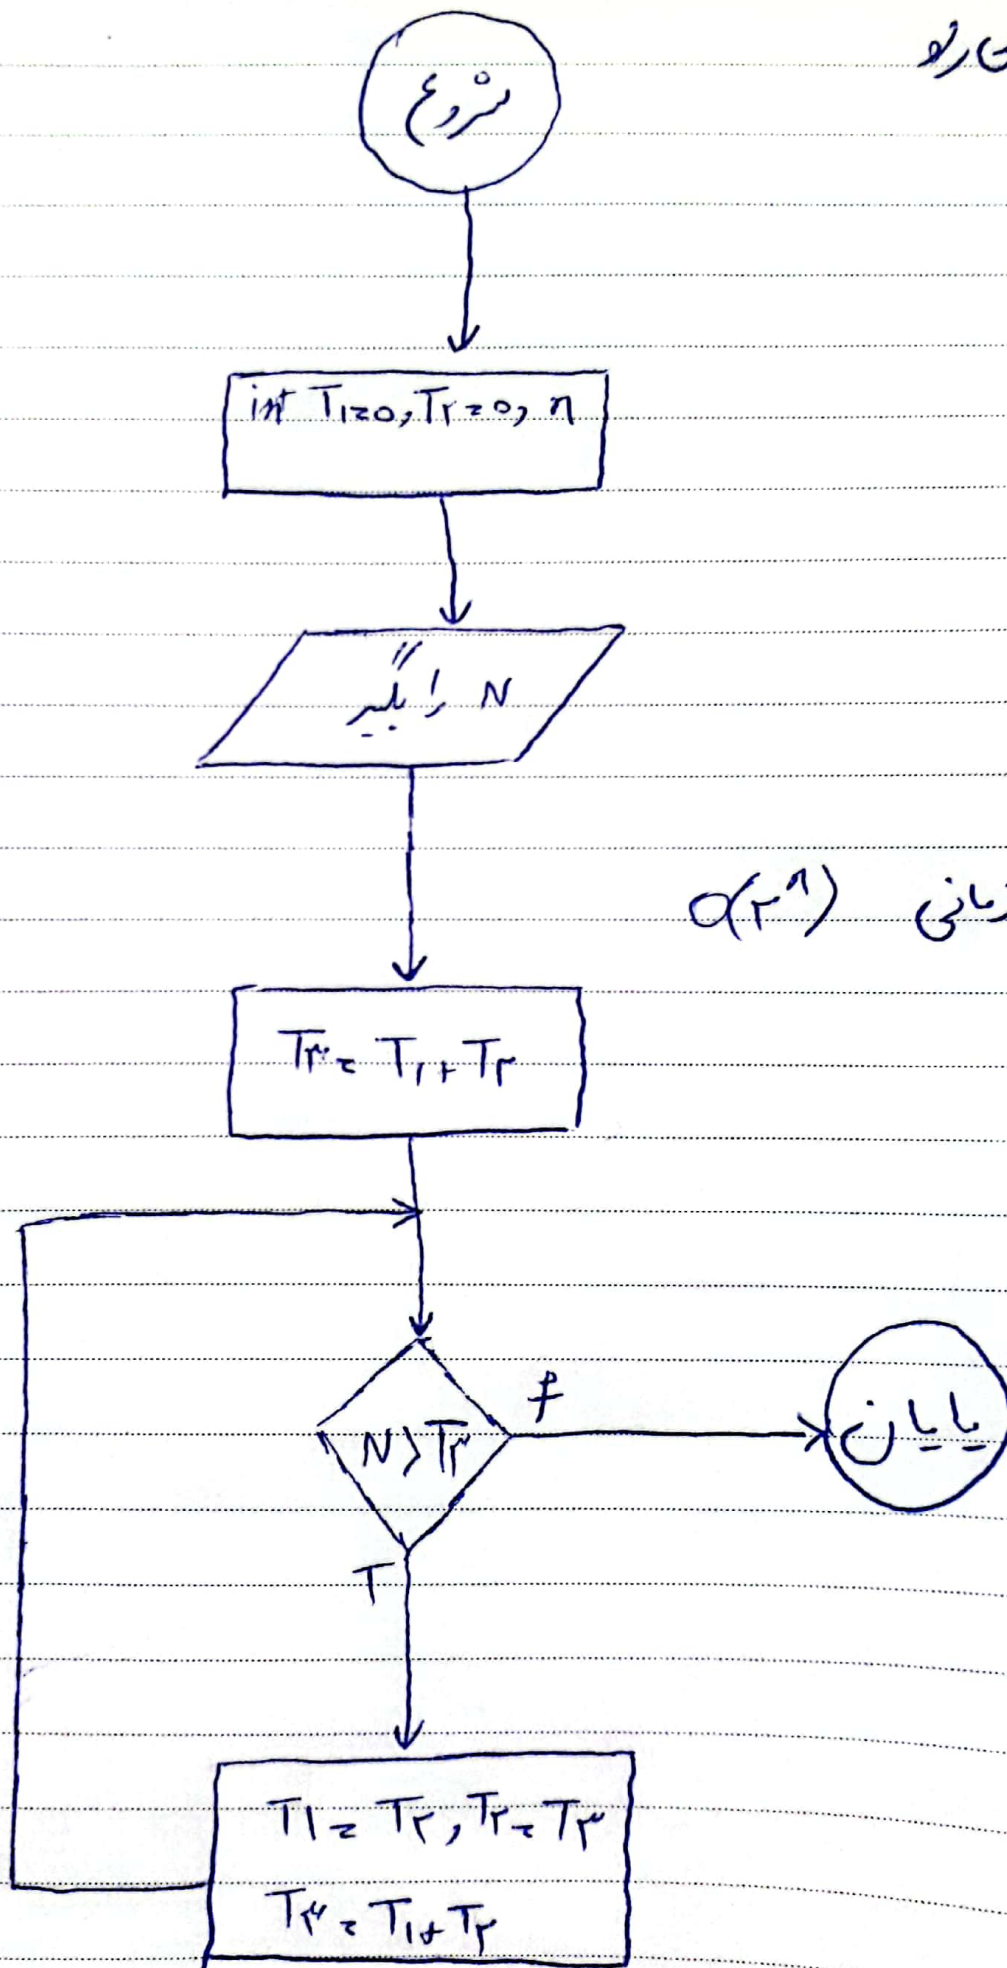 شروع
int T۱=0, T۲=0, n
N را بگیر
زمانی O(۲^n)
T۳ = T۱ + T۲
N > T۳
f
پایان
T
T۱ = T۲, T۲ = T۳
T۳ = T۱ + T۲